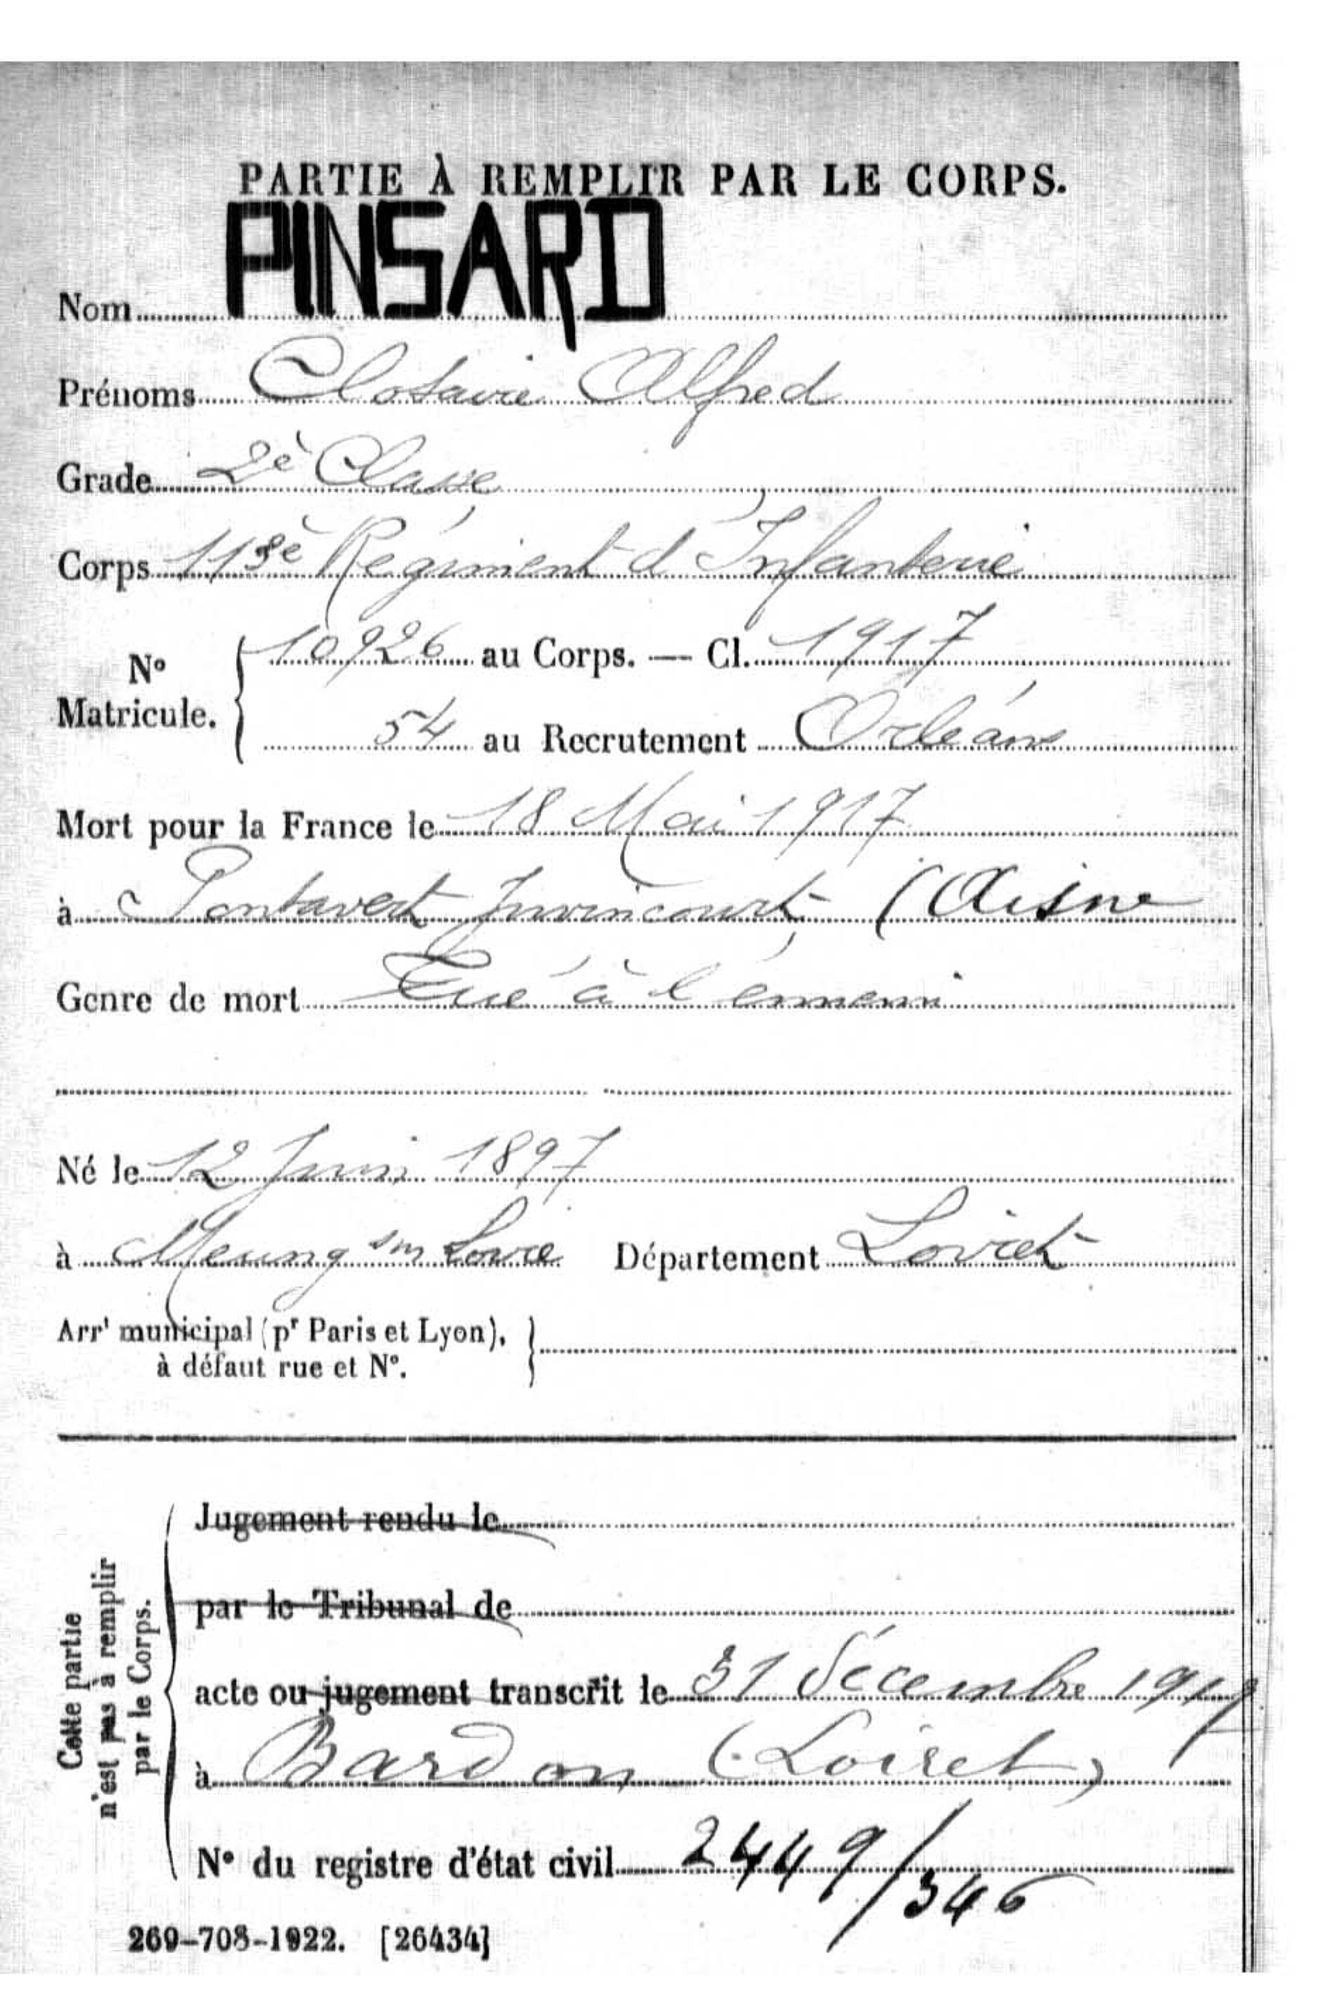 PARTIE À REMPLIR PAR LE CORPS.
Nom PINSARD
Prénoms Clotaire Alfred
Grade 2è Classe
Corps 113è Régiment d'Infanterie
N° Matricule. { 10926 au Corps. — Cl. 1917
54 au Recrutement Orléans
Mort pour la France le 18 Mai 1917
à Pontavert Juvincourt (Aisne
Genre de mort Tué à l'ennemi
Né le 12 Juin 1897
à Meung sur Loire Département Loiret
Arrt municipal (pr Paris et Lyon),
à défaut rue et N°.
Cette partie
n'est pas à remplir
par le Corps.
Jugement rendu le
par le Tribunal de
acte ou jugement transcrit le 31 décembre
à Bardon (Loiret)
N° du registre d'état civil 2449/346
269-708-1922. [26434]